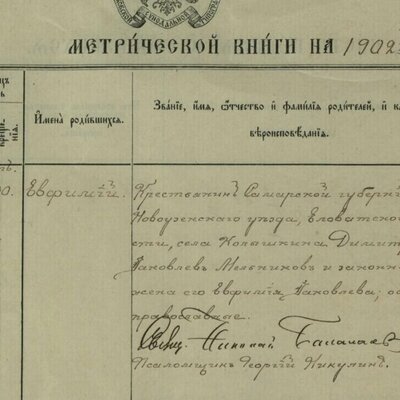 МЕТРИЧЕСКОЙ КНИГИ НА 1902
Имена родившихся.
Званіе, имя, отчество и фамилія родителей, и к
вѣроисповѣданія.
Евфимій.
Крестьянинъ Самарской губерн
Новоузенскаго уѣзда, Еловатско
сти, села Копышкина Димит
Яковлевъ Мельниковъ и законн
жена его Евфимія Яковлева; о
православные.
Свящ. Николай
Псаломщикъ Георгій Никулинъ.